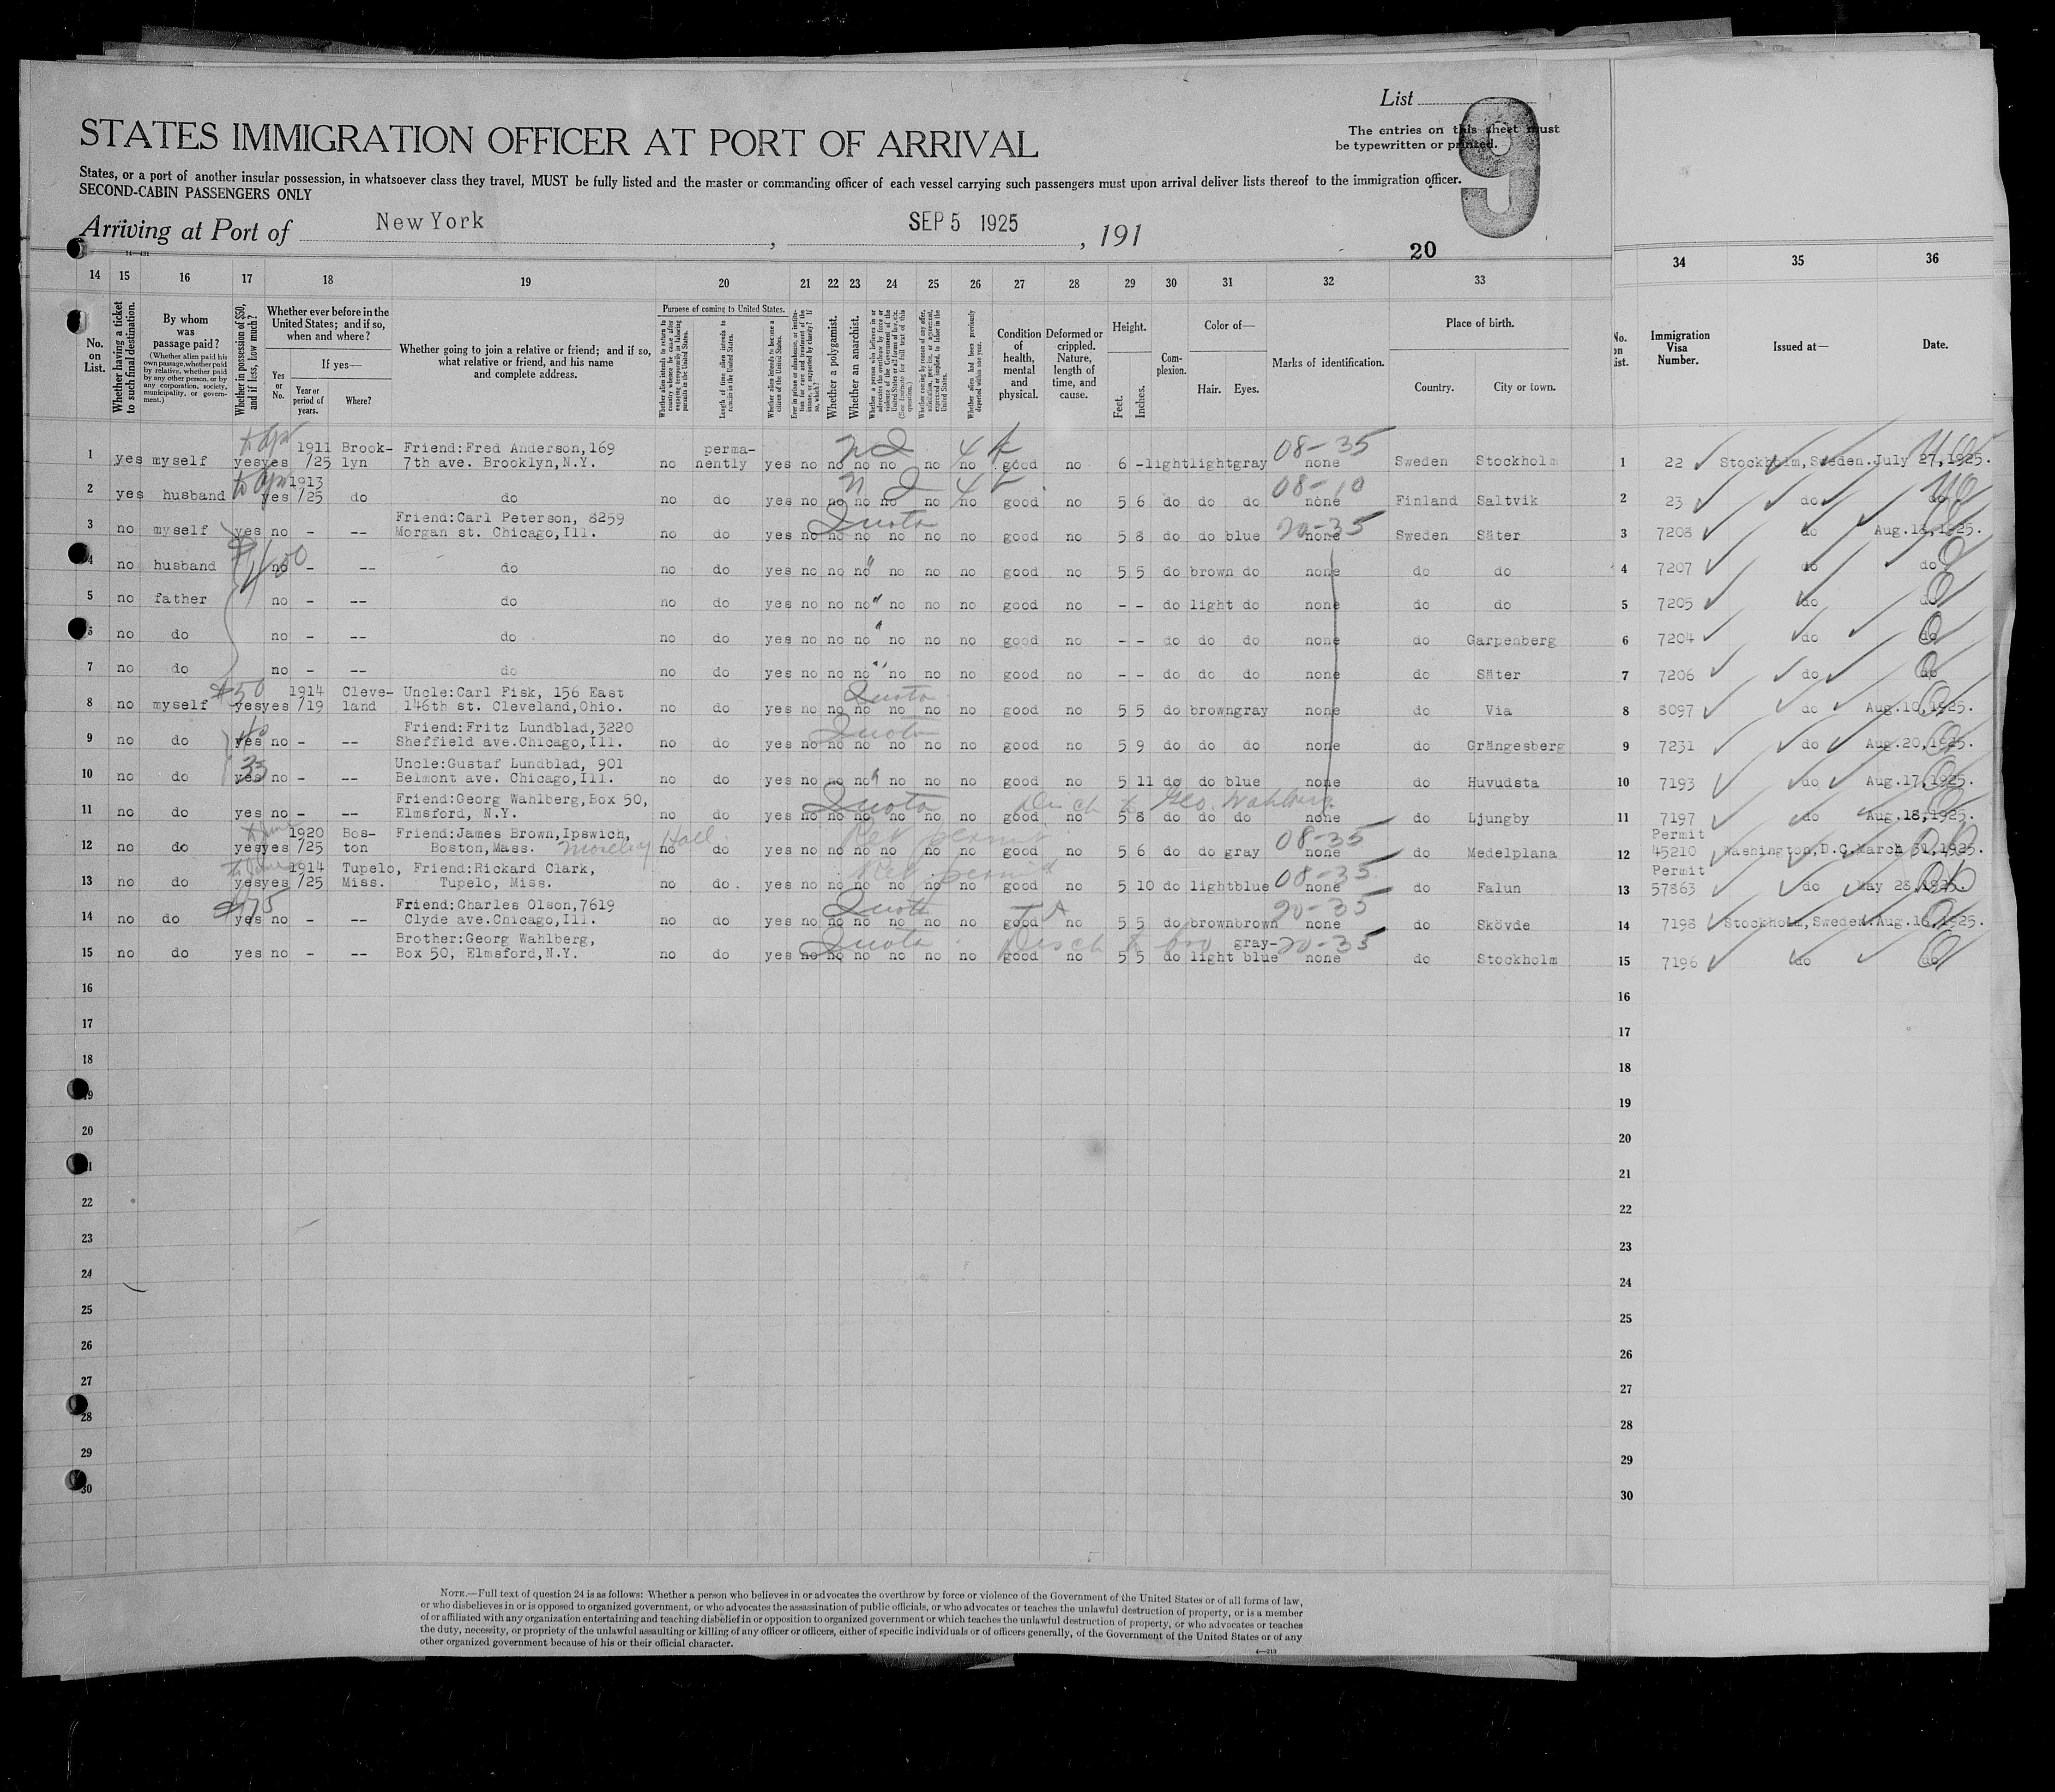 List
9
The entries on this sheet must
be typewritten or printed.
STATES IMMIGRATION OFFICER AT PORT OF ARRIVAL
States, or a port of another insular possession, in whatsoever class they travel, MUST be fully listed and the master or commanding officer of each vessel carrying such passengers must upon arrival deliver lists thereof to the immigration officer.
SECOND-CABIN PASSENGERS ONLY
Arriving at Port of New York , SEP 5 1925 , 191
20
14 15 16 17 18 19 20 21 22 23 24 25 26 27 28 29 30 31 32 33 34 35 36
No. on List.
Whether having a ticket to such final destination.
By whom was passage paid?
(Whether alien paid his own passage, whether paid by relative, whether paid by any other person, or by any corporation, society, municipality, or government.)
Whether in possession of $50, and if less, how much?
Whether ever before in the United States; and if so, when and where?
Yes or No.
If yes—
Year or period of years.
Where?
Whether going to join a relative or friend; and if so, what relative or friend, and his name and complete address.
Purpose of coming to United States.
Whether alien intends to return to country whence he came after engaging temporarily in laboring pursuits in the United States.
Length of time alien intends to remain in the United States.
Whether alien intends to become a citizen of the United States.
Whether a polygamist.
Whether an anarchist.
Condition of health, mental and physical.
Deformed or crippled. Nature, length of time, and cause.
Height.
Feet.
Inches.
Complexion.
Color of—
Hair. Eyes.
Marks of identification.
Place of birth.
Country. City or town.
No. on List.
Immigration Visa Number.
Issued at—
Date.
1 yes myself yes yes 1911/25 Brooklyn Friend:Fred Anderson,169 7th ave. Brooklyn,N.Y. no permanently yes no no no no no no good no 6 - light light gray 08-35 none Sweden Stockholm 1 22 Stockholm, Sweden. July 27,1925.
2 yes husband yes 1913/25 do do no do yes no no no no no no good no 5 6 do do do 08-10 none Finland Saltvik 2 23 do do
3 no myself yes no - - Friend:Carl Peterson, 8259 Morgan st. Chicago,Ill. no do yes no no no no no no Quota good no 5 8 do do blue 20-35 none Sweden Säter 3 7208 do Aug.18,1925.
4 no husband no - -- do no do yes no no no no no no good no 5 5 do brown do none do do 4 7207 do do
5 no father no - -- do no do yes no no no no no no good no - - do light do none do do 5 7205 do do
6 no do no - -- do no do yes no no no no no no good no - - do do do none do Garpenberg 6 7204 do do
7 no do no - -- do no do yes no no no no no no good no - - do do do none do Säter 7 7206 do do
8 no myself $50 yes yes 1914/19 Cleveland Uncle:Carl Fisk, 156 East 146th st. Cleveland,Ohio. no do yes no no no no no no Quota good no 5 5 do brown gray none do Via 8 8097 do Aug.10,1925.
9 no do yes no - -- Friend:Fritz Lundblad,3220 Sheffield ave.Chicago,Ill. no do yes no no no no no no Quota good no 5 9 do do do none do Grängesberg 9 7231 do Aug.20,1925.
10 no do 33 yes no - -- Uncle:Gustaf Lundblad, 901 Belmont ave. Chicago,Ill. no do yes no no no no no no good no 5 11 do do blue none do Huvudsta 10 7193 do Aug.17,1925.
11 no do yes no - -- Friend:Georg Wahlberg,Box 50, Elmsford, N.Y. no do yes no no no no no no Quota good no Disch to Geo. Wahlberg 5 8 do do do none do Ljungby 11 7197 do Aug.18,1925.
12 no do yes yes 1920/25 Boston Friend:James Brown,Ipswich, Boston,Mass. no do yes no no no no no no Ret permit good no 5 6 do do gray 08-35 none do Medelplana 12 Permit 45210 Washington,D.C. March 31,1925.
13 no do yes yes 1914/25 Tupelo, Miss. Friend:Rickard Clark, Tupelo, Miss. no do. yes no no no no no no Ret permit good no 5 10 do light blue 08-35 none do Falun 13 Permit 57863 do May 28,1925.
14 no do $75 yes no - -- Friend:Charles Olson,7619 Clyde ave.Chicago,Ill. no do yes no no no no no no Quota good no 5 5 do brown brown 20-35 none do Skövde 14 7198 Stockholm, Sweden. Aug.18,1925.
15 no do yes no - -- Brother:Georg Wahlberg, Box 50, Elmsford,N.Y. no do yes no no no no no no Quota good no Disch to bro 5 5 do light gray-blue 20-35 none do Stockholm 15 7196 do do
16 16
17 17
18 18
19 19
20 20
21 21
22 22
23 23
24 24
25 25
26 26
27 27
28 28
29 29
30 30
NOTE.—Full text of question 24 is as follows: Whether a person who believes in or advocates the overthrow by force or violence of the Government of the United States or of all forms of law,
or who disbelieves in or is opposed to organized government, or who advocates the assassination of public officials, or who advocates or teaches the unlawful destruction of property, or is a member
of or affiliated with any organization entertaining and teaching disbelief in or opposition to organized government or which teaches the unlawful destruction of property, or who advocates or teaches
the duty, necessity, or propriety of the unlawful assaulting or killing of any officer or officers, either of specific individuals or of officers generally, of the Government of the United States or of any
other organized government because of his or their official character.